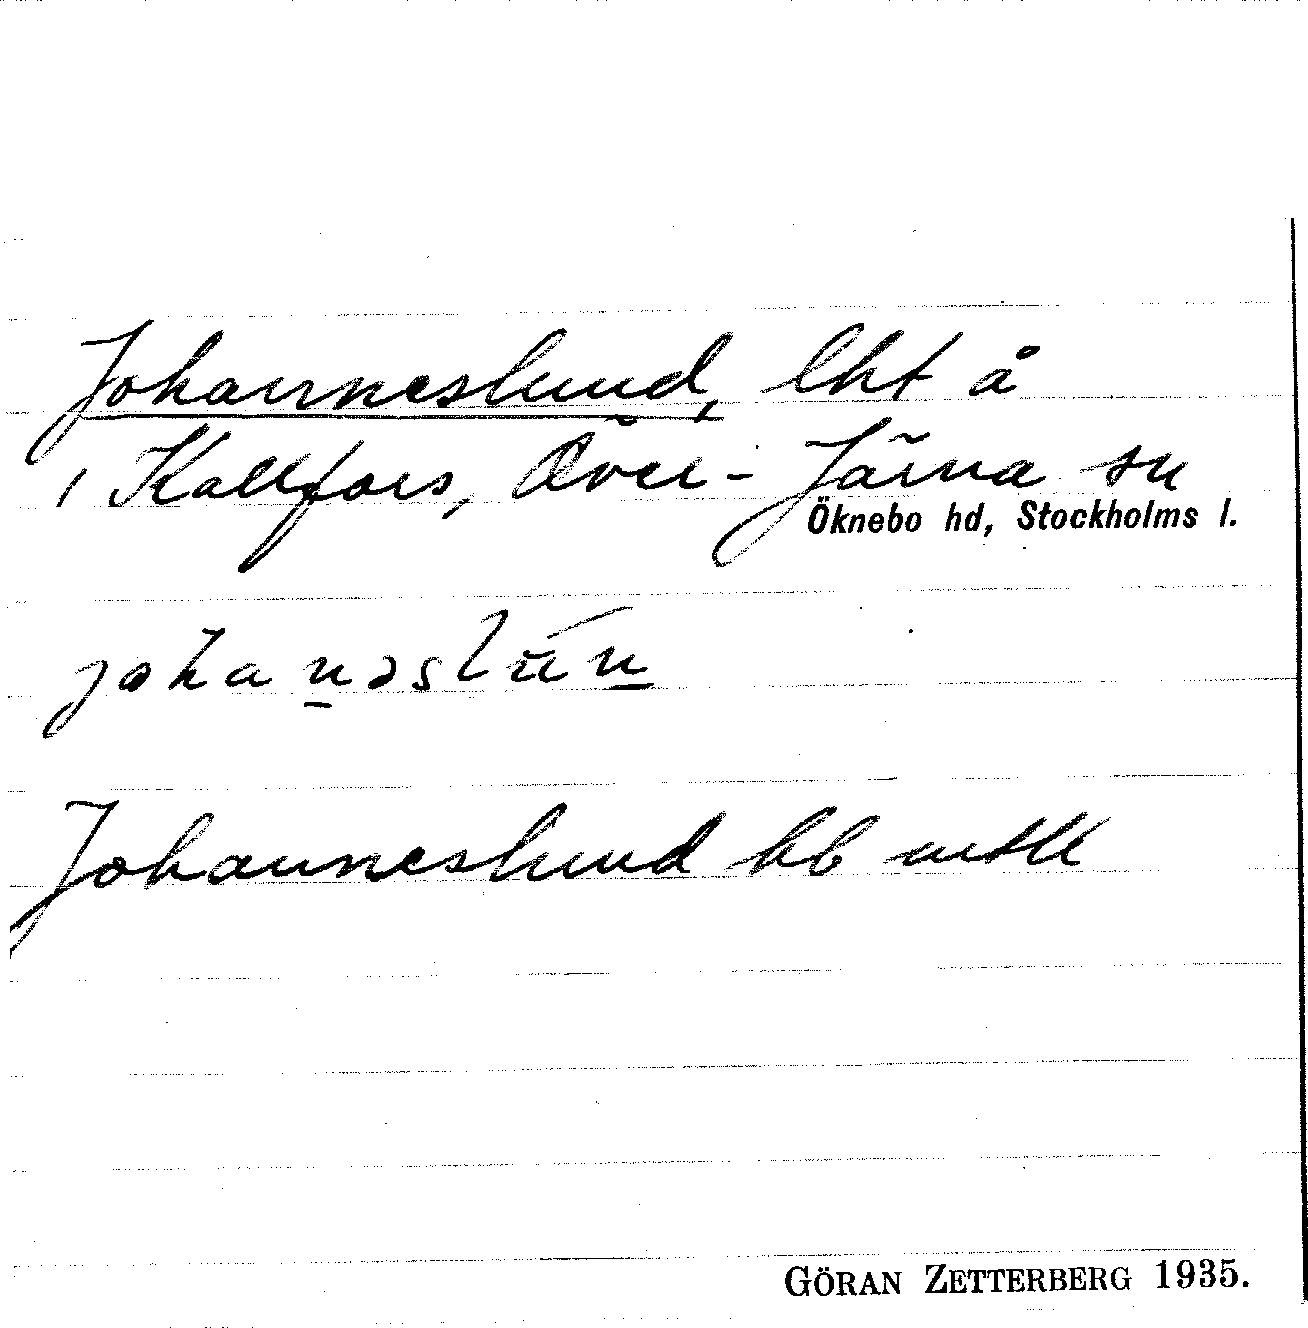 Johanneslund, lht å
1 Kallfors, Över-Järna sn
Öknebo hd, Stockholms l.
johanəslun
Johanneslund hb
GÖRAN ZETTERBERG 1935.